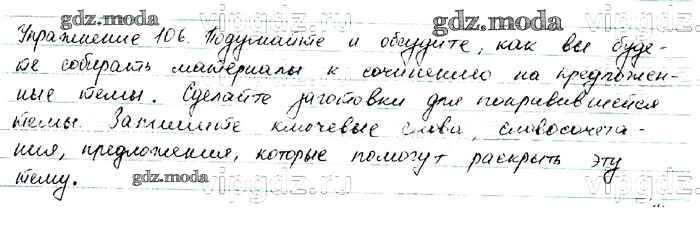 gdz.moda
gdz.moda
Упражнение 106. Подумайте и обсудите, как вы буде-
те собирать материалы к сочинению на предложен-
ные темы. Сделайте заготовки для понравившейся
темы. Запишите ключевые слова, словосочета-
ния, предложения, которые помогут раскрыть эту
тему.
gdz.moda
gdz.moda
vipgdz.ru